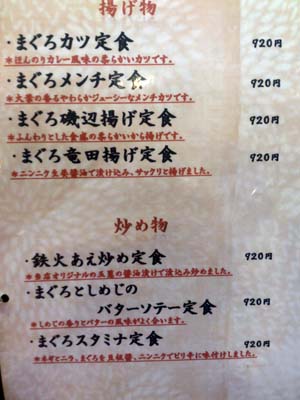 揚げ物
・まぐろカツ定食 920円
＊ほんのりカレー風味の柔らかいカツです。
・まぐろメンチ定食 920円
＊大葉の香るやわらかジューシーなメンチカツです。
・まぐろ磯辺揚げ定食 920円
＊ふんわりとした食感の柔らかいから揚げです。
・まぐろ竜田揚げ定食 920円
＊ニンニク生姜醤油で漬け込み、サックリと揚げました。
炒め物
・鉄火あえ炒め定食 920円
＊当店オリジナルの玉葱の醤油漬けで漬込み炒めました。
・まぐろとしめじの
バターソテー定食 920円
＊しめじの香りとバターの風味がよく合います。
・まぐろスタミナ定食 920円
＊ネギとニラ、まぐろを豆板醤、ニンニクでピリ辛に味付けしました。